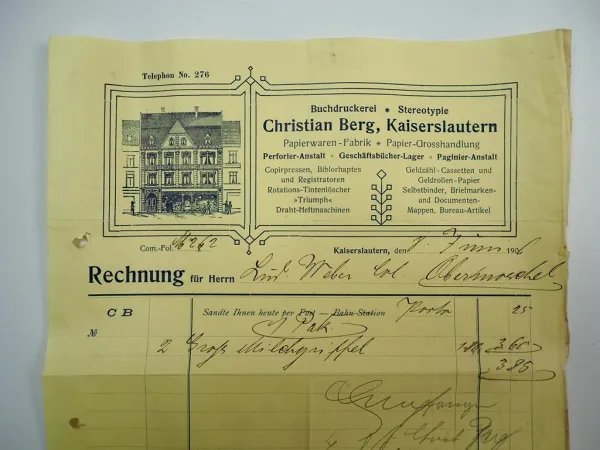 Telephon No. 276
Buchdruckerei * Stereotypie
Christian Berg, Kaiserslautern
Papierwaren-Fabrik * Papier-Grosshandlung
Perforier-Anstalt * Geschäftsbücher-Lager * Paginier-Anstalt
Copirpressen, Biblorhaptes
und Registratoren
Rotations-Tintenlöscher
»Triumph«
Draht-Heftmaschinen
Geldzähl-Cassetten und
Geldrollen-Papier
Selbstbinder, Briefmarken-
und Documenten-
Mappen, Bureau-Artikel
Com.-Fol. 
Kaiserslautern, den 8. Juni 1906
Rechnung für Herrn Lud. Weber Col. Obermoschel
C B Sandte Ihnen heute per Post — Bahn-Station Porto 25
1 Pak.
№
2 Groß Milchgriffel 180 3.60
3.85